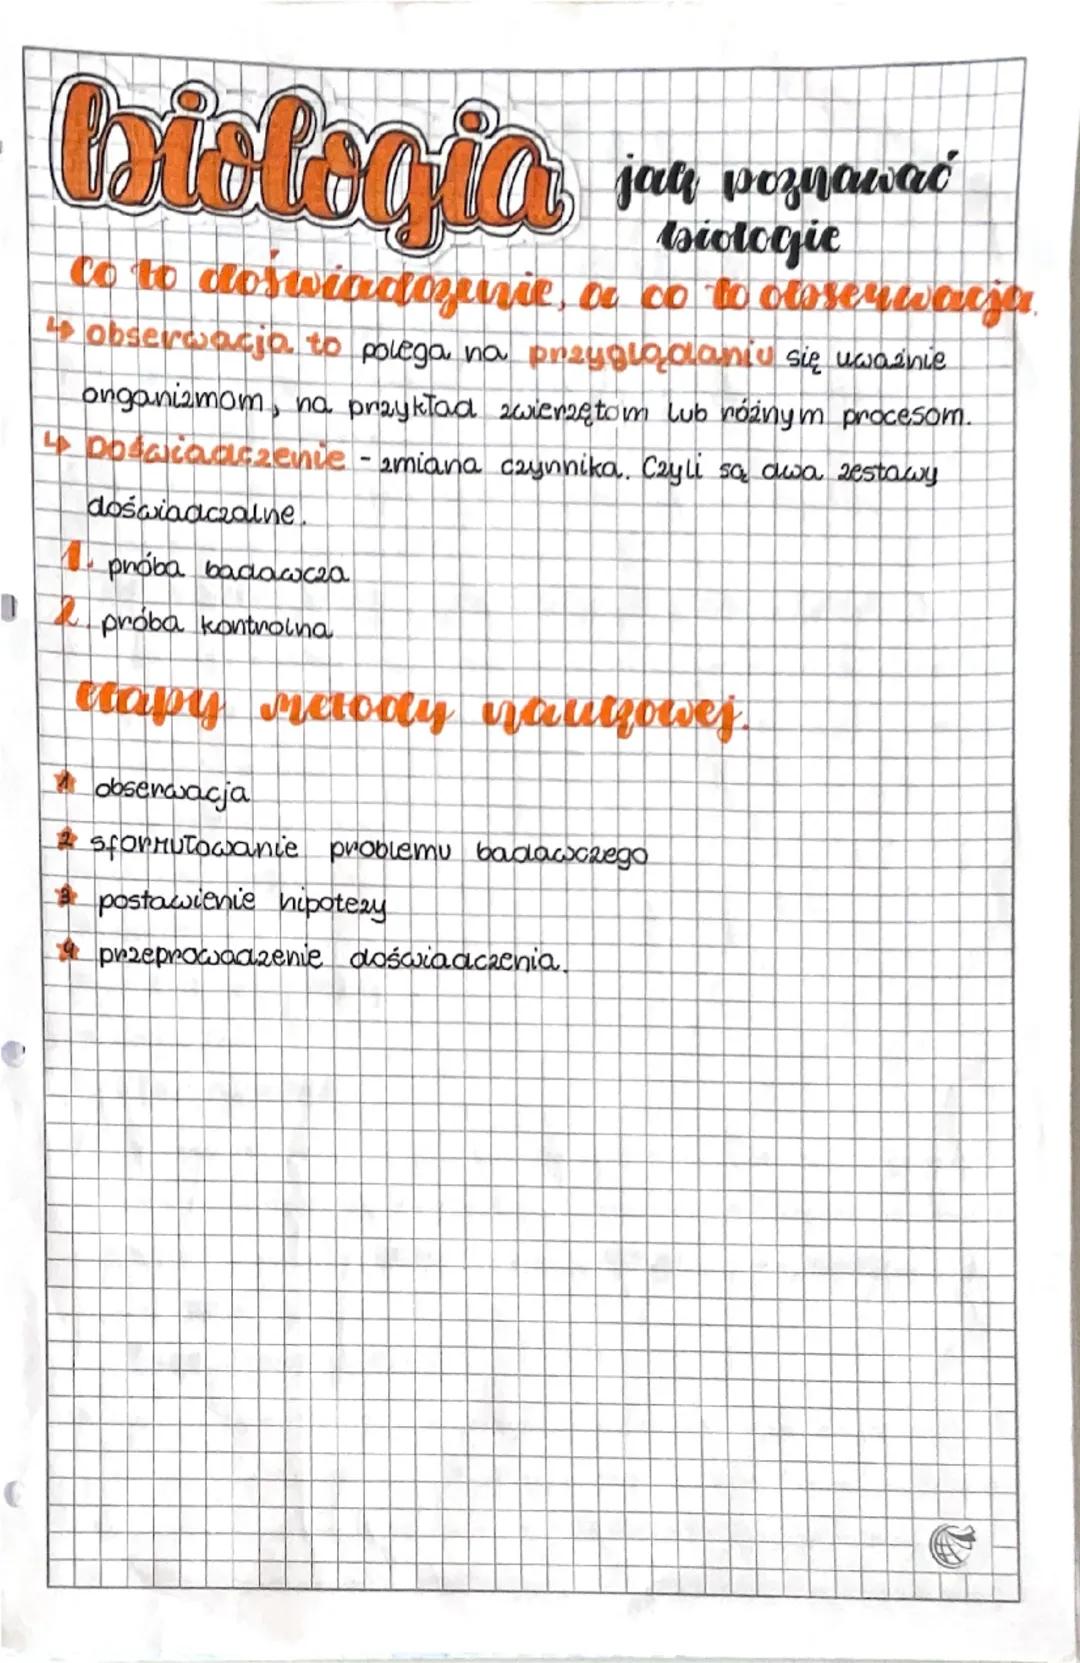 biologia
jak poznawać
biologie
co to doświadczenie, a co to obserwacja.
↳ obserwacja to polega na przyglądaniu się uważnie
organizmom, na przykład zwierzętom lub różnym procesom.
↳ Doświadczenie - zmiana czynnika. Czyli są dwa zestawy
doświadczalne.
1. próba badawcza
2. próba kontrolna
etapy metody naukowej.
1 obserwacja
2 sformułowanie problemu badawczego
3 postawienie hipotezy
4 przeprowadzenie doświadczenia.